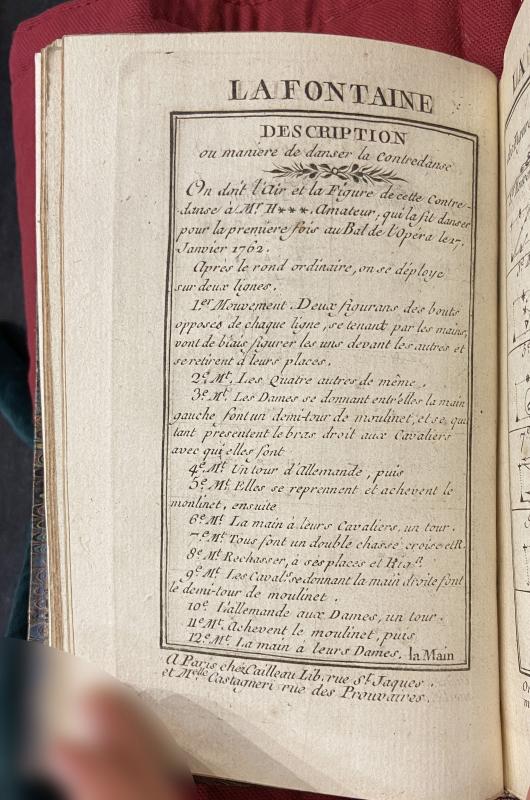 LA FONTAINE
DESCRIPTION
ou maniere de danser la Contredanse
On doit l'Air et la Figure de cette Contre-
danse à Mr. H***. Amateur, qui la fit danser
pour la premiere fois au Bal de l'Opéra le 17.
Janvier 1762.
Après le rond ordinaire, on se déploye
sur deux lignes.
1.er Mouvement. Deux figurans des bouts
opposés de chaque ligne, se tenant par les mains,
vont de biais figurer les uns devant les autres et
se retirent à leurs places.
2.e Mt. Les Quatre autres de même.
3.e Mt. Les Dames se donnant entr'elles la main
gauche font un demi-tour de moulinet, et se quit
tant presentent le bras droit aux Cavaliers
avec qui elles font
4.e Mt. Un tour d'Allemande, puis
5.e Mt. Elles se reprennent et achevent le
moulinet, ensuite
6.e Mt. La main à leurs Cavaliers, un tour.
7.e Mt. Tous font un double chassé croisé et R.
8.e Mt. Rechasser, à ses places et Rig.n
9.e Mt. Les Caval.s se donnant la main droite font
le demi-tour de moulinet.
10.e L'allemande aux Dames, un tour.
11.e Mt. Achevent le moulinet, puis
12.e Mt. La main à leurs Dames. la Main
A Paris chez Cailleau Lib. rue St. Jaques.
et Melle Castagneri rue des Prouvaires.